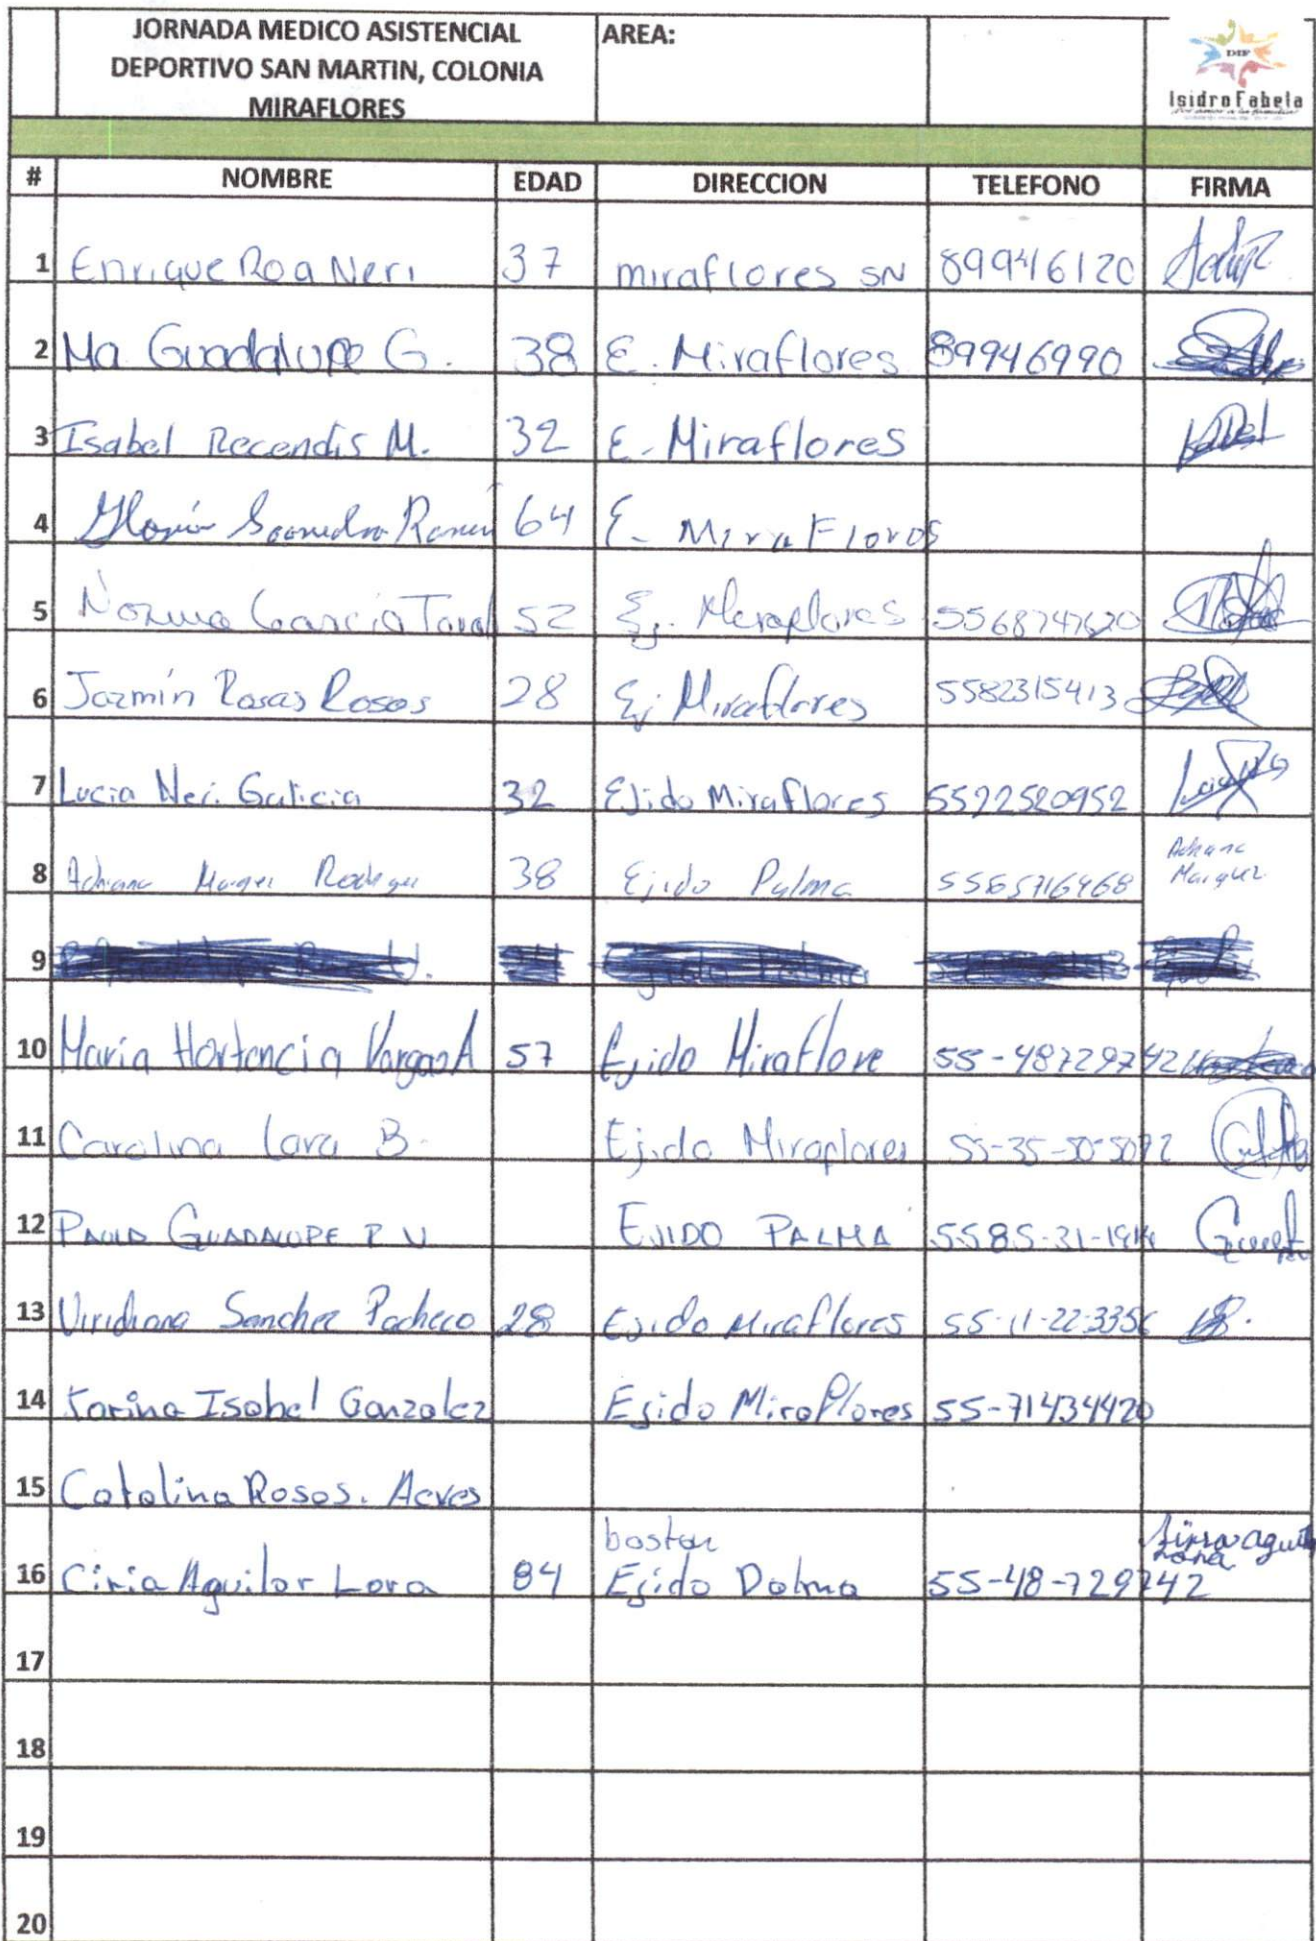 JORNADA MEDICO ASISTENCIAL
DEPORTIVO SAN MARTIN, COLONIA
MIRAFLORES
AREA:
DIF
Isidro Fabela
# NOMBRE EDAD DIRECCION TELEFONO FIRMA
1 Enrique Roa Neri 37 miraflores SN 89946120
2 Ma Guadalupe G. 38 E. Miraflores 89946990
3 Isabel Recendis M. 32 E. Miraflores
4 Gloria Saavedra 64 E. MiraFlores
5 Norma Garcia 52 Ej. Miraflores 5568747620
6 Jazmín Rosas Rosas 28 Ej. Miraflores 5582315413
7 Lucia Neri Galicia 32 Ejido Miraflores 5522520952
8 Adriana 38 Ejido Palma Adriana
Marquez
9
10 Maria Hortencia Vargas A 57 Ejido Miraflore 55-48729742
11 Carolina Lara B. Ejido Miraflores 55-35-50-5072
12 PAOLA GUADALUPE EJIDO PALMA
13 Viridiana Sanchez Pacheco 28 Ejido Miraflores 55-11-22-3356
14 Karina Isabel Gonzalez Ejido Miraflores 55-71434420
15 Catalina Rosas. Aeves
boston
16 Ciria Aguilar Lora 84 Ejido Dolma 55-48-729742
17
18
19
20